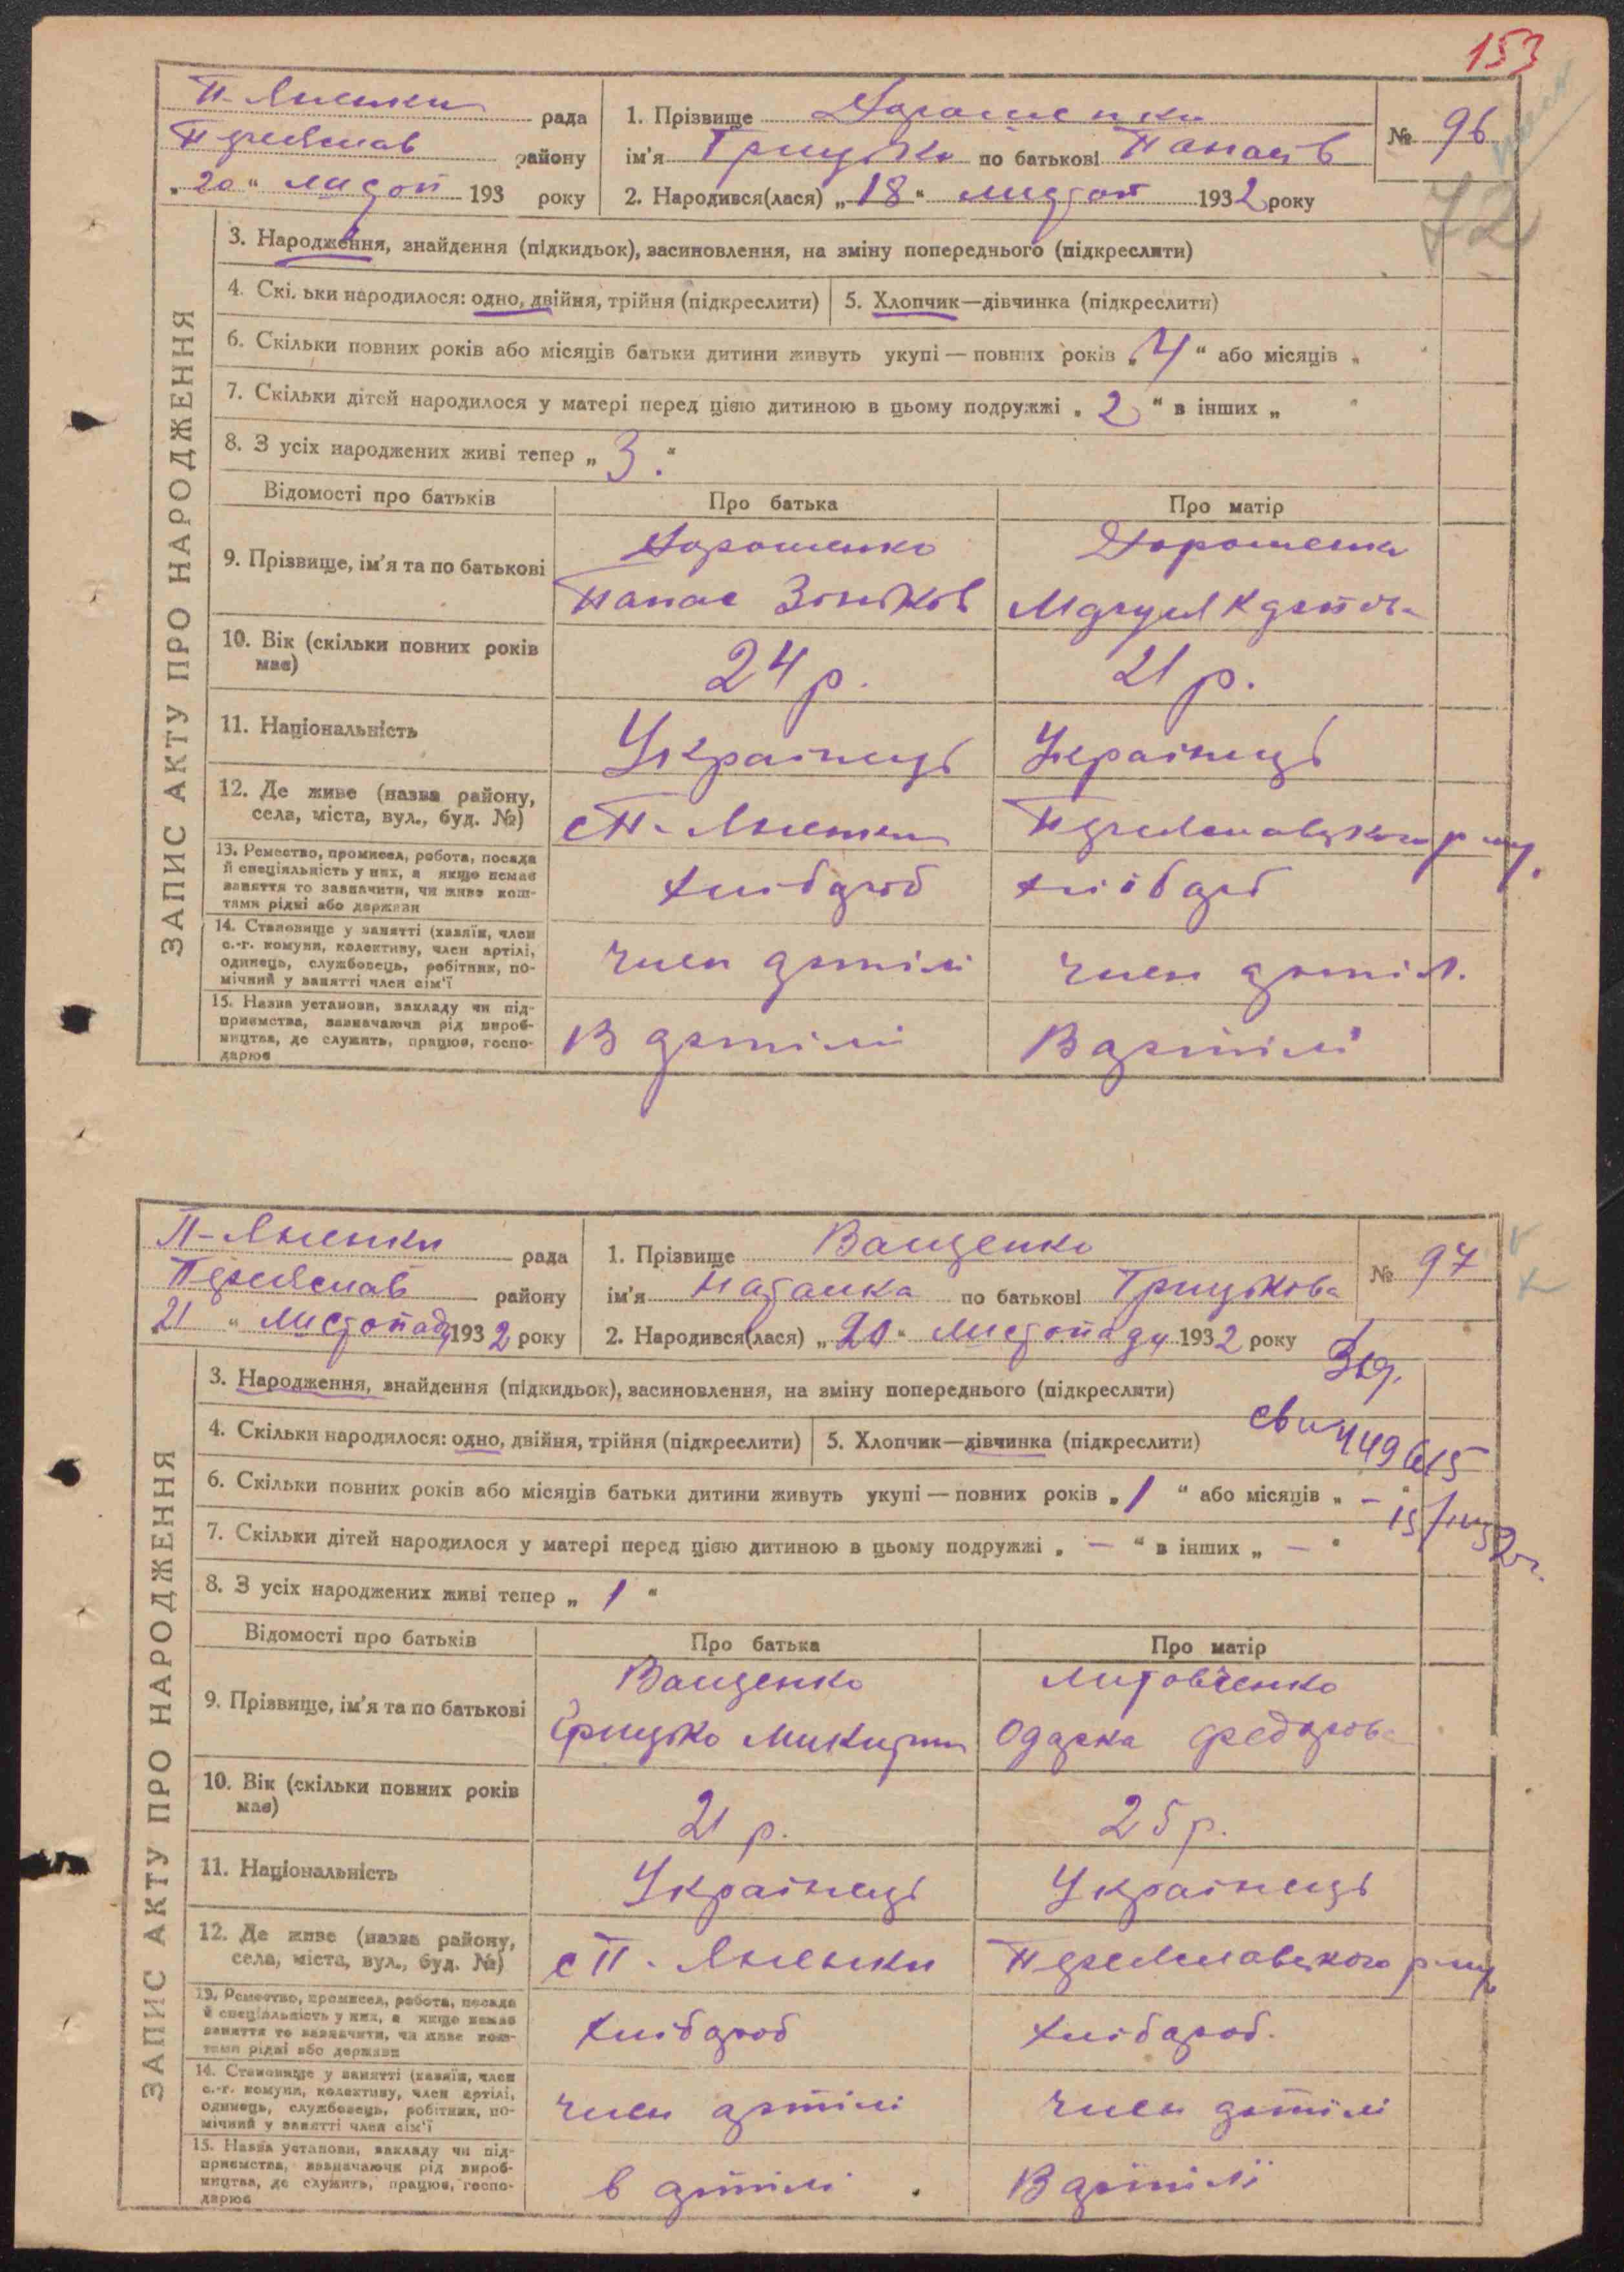 153
П-Яненки рада
Переяслав району
„20“ листоп 193 року
1. Прізвище Дорошенко
ім'я Грицько по батькові Панасів
№ 96
2. Народився(лася) „18“ листоп 1932 року
72
ЗАПИС АКТУ ПРО НАРОДЖЕННЯ
3. Народження, знайдення (підкидьок), засиновлення, на зміну попереднього (підкреслити)
4. Скільки народилося: одно, двійня, трійня (підкреслити)
5. Хлопчик—дівчинка (підкреслити)
6. Скільки повних років або місяців батьки дитини живуть укупі — повних років „4“ або місяців „ “
7. Скільки дітей народилося у матері перед цією дитиною в цьому подружжі „2“ в інших „ “
8. З усіх народжених живі тепер „3“
Відомості про батьків
Про батька
Про матір
9. Прізвище, ім'я та по батькові
Дорошенко
Панас Зіньків
Дорошенко
10. Вік (скільки повних років
має)
24 р.
21 р.
11. Національність
Українець
Українець
12. Де живе (назва району,
села, міста, вул., буд. №)
с П-Яненки
Переяславського р-ну
13. Ремество, промисел, робота, посада
й спеціяльність у них, а якщо немає
заняття то зазначити, чи живе кош-
тами рідні або держави
хлібороб
хлібороб
14. Становище у занятті (хазяїн, член
с.-г. комуни, колективу, член артілі,
одинець, службовець, робітник, по-
мічний у занятті член сім'ї
член артілі
член артіл.
15. Назва установи, закладу чи під-
приємства, зазначаючи рід вироб-
ництва, де служить, працює, госпо-
дарює
В артілі
В артілі
П-Яненки рада
Переяслав району
„21“ Листопаду 1932 року
1. Прізвище Ващенко
ім'я Наталка по батькові Грицькова
№ 97
2. Народився(лася) „20“ листопаду 1932 року
ЗАПИС АКТУ ПРО НАРОДЖЕННЯ
3. Народження, знайдення (підкидьок), засиновлення, на зміну попереднього (підкреслити)
4. Скільки народилося: одно, двійня, трійня (підкреслити)
5. Хлопчик—дівчинка (підкреслити)
6. Скільки повних років або місяців батьки дитини живуть укупі — повних років „1“ або місяців „–“
7. Скільки дітей народилося у матері перед цією дитиною в цьому подружжі „–“ в інших „–“
8. З усіх народжених живі тепер „1“
Відомості про батьків
Про батька
Про матір
9. Прізвище, ім'я та по батькові
Ващенко
Грицько Микитин
Литовченко
Одарка Федорова
10. Вік (скільки повних років
має)
21 р.
25 р.
11. Національність
Українець
Українець
12. Де живе (назва району,
села, міста, вул., буд. №)
с П-Яненки
Переяславського р-ну
13. Ремество, промисел, робота, посада
й спеціяльність у них, а якщо немає
заняття то зазначити, чи живе кош-
тами рідні або держави
хлібороб
хлібороб.
14. Становище у занятті (хазяїн, член
с.-г. комуни, колективу, член артілі,
одинець, службовець, робітник, по-
мічний у занятті член сім'ї
член артілі
член артілі
15. Назва установи, закладу чи під-
приємства, зазначаючи рід вироб-
ництва, де служить, працює, госпо-
дарює
в артілі
В артілі